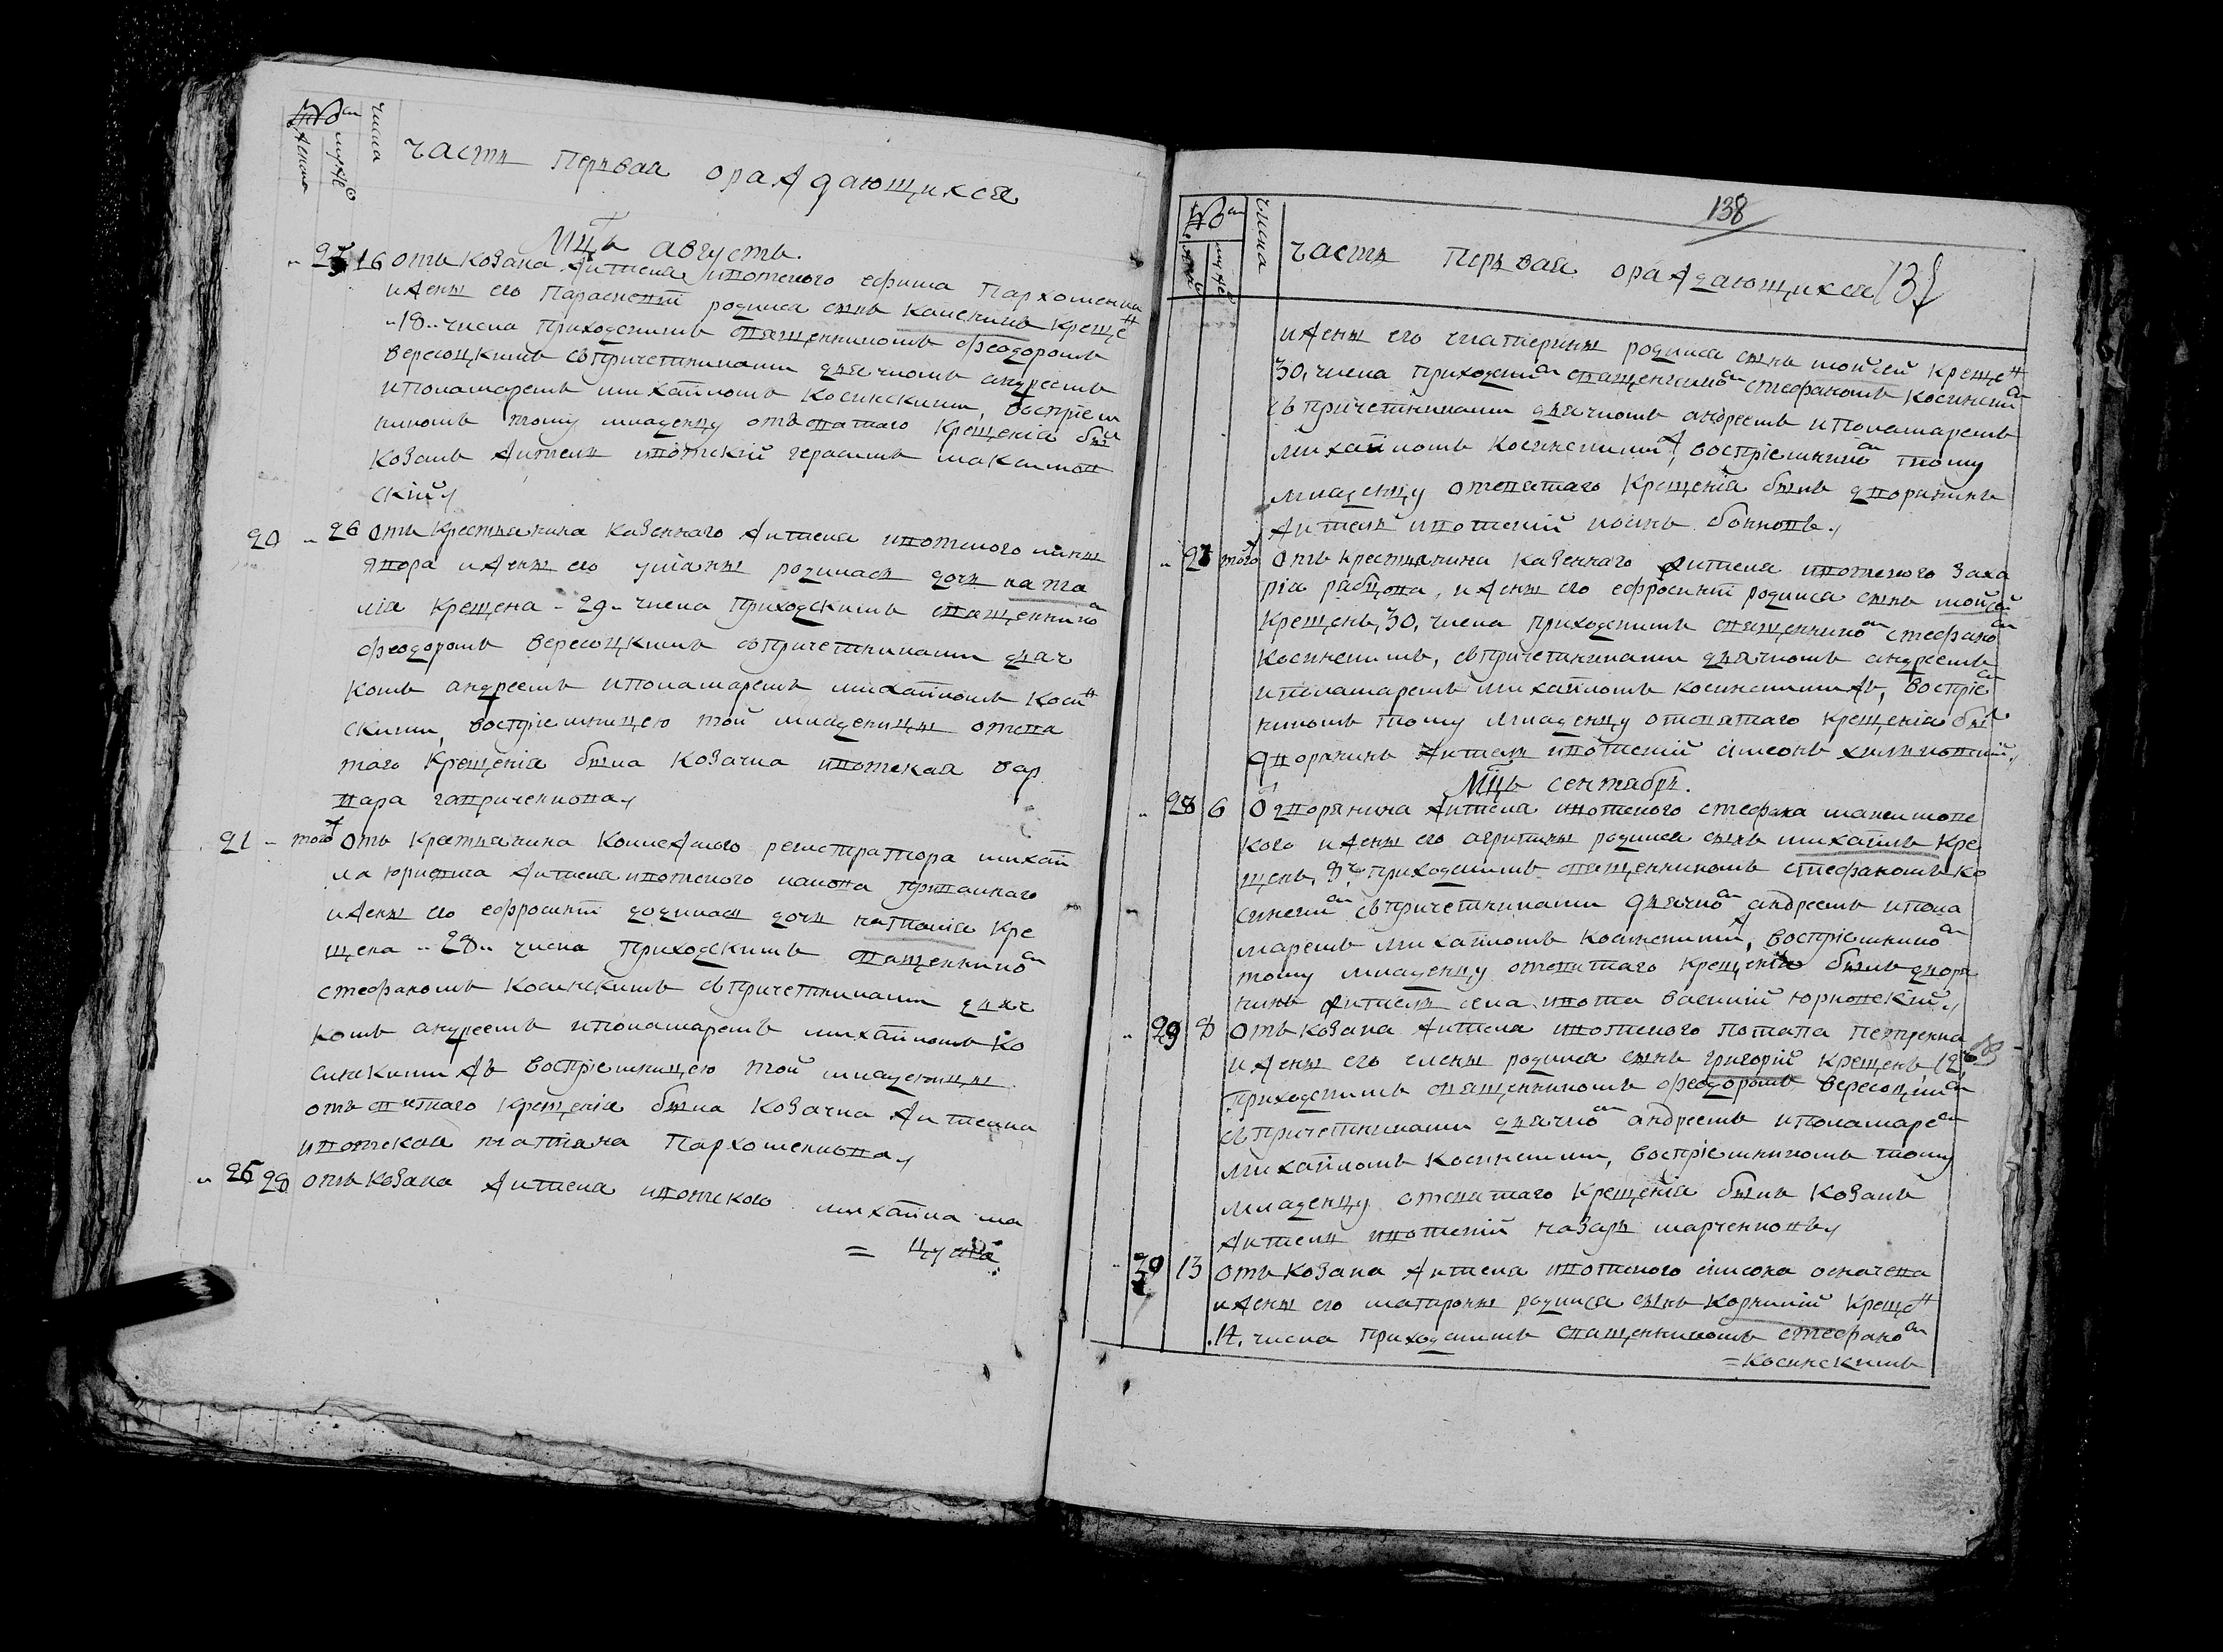 числа
Часть Первая ораждающихся
Мцъ августъ.
25 16 отъ козака жителя ивотского ефима Пархоменка
ижены его Параскевіи родился сынъ каленикъ креще н
18 числа приходскимъ священникомъ феодоромъ
вересоцкимъ съпричетниками дячкомъ андреемъ
ипономаремъ михайломъ косинскими, воспріем
никомъ тому младенцу отъ святаго крещенія былъ
козакъ житель ивотскій герасимъ максимов
скій
20 26 отъ крестьянина казеннаго жителя ивотского
ижены его уліаны родилась дочь ната
лія крещена 29 числа приходскимъ священнико м
феодоромъ вересоцкимъ съпричетниками дяч
комъ андреемъ ипономаремъ михайломъ коси н
скими, воспріемницею той младеницы отсвя
таго крещенія была козачка ивотская вар
вара
21 того ж отъ крестьянина колежского регистратора михай
ла жителя ивотского
ижены его ефросиніи родилась дочь наталія кре
щена 28 числа приходскимъ священнико м
стефаномъ косинскимъ съпричетниками дяч
комъ андреемъ ипономаремъ михайломъ ко
синскимижъ воспріемницею той младеницы
отъ святаго крещенія была козачка жителка
ивотская татіана Пархоменкова
26 28 отъ козака жителя ивотского михайла ма
= цука
138
числа
Часть Первая ораждающихся
ижены его екатерины родился сынъ мойсей креще н
30, числа приходски м священнико м стефаномъ косински м
съпричетниками дячкомъ андреемъ ипономаремъ
михайломъ косинскими ж, воспріемнико м тому
младенцу отсвятаго крещенія былъ дворянинъ
житель ивотскій
27 того ж отъ крестьянина казеннаго жителя ивотского Заха
рія ижены его ефросиніи родился сынъ мойсей
крещенъ, 30, числа приходскимъ священнико м стефано м
косинскимъ, съпричетниками дячкомъ андреемъ
ипономаремъ михайломъ косинскимижъ, воспріем
никомъ тому младенцу отсвятаго крещенія былъ
дворянинъ житель ивотскій симеонъ
Мцъ сентябрь.
28 6 От дворянина жителя ивотского стефана максимовс
кого ижены его агрипины родился сынъ михайлъ кре
щенъ, 8, ч приходскимъ священникомъ стефаномъ ко
сински м съпричетниками дячко м андреемъ ипоно
маремъ михайломъ косинскими ж, воспріемнико м
тому младенцу отсвятаго крещенія былъ дворя
нинъ житель села ивота василій
29 8 отъ козака жителя ивотского потапа петренка
ижены его елены родился сынъ григорій крещенъ, 12,
приходскимъ священникомъ феодоромъ вересоцки м
съпричетниками дячко м андреемъ ипономаре м
михайломъ косинскими, воспріемникомъ тому
младенцу отсвятаго крещенія былъ козакъ
житель ивотскій назаръ марченковъ
30 13 отъ козака жителя ивотского симеона осначева
ижены его матроны родился сынъ корнилій креще н
14, числа приходскимъ священникомъ стефано м
=косинскимъ